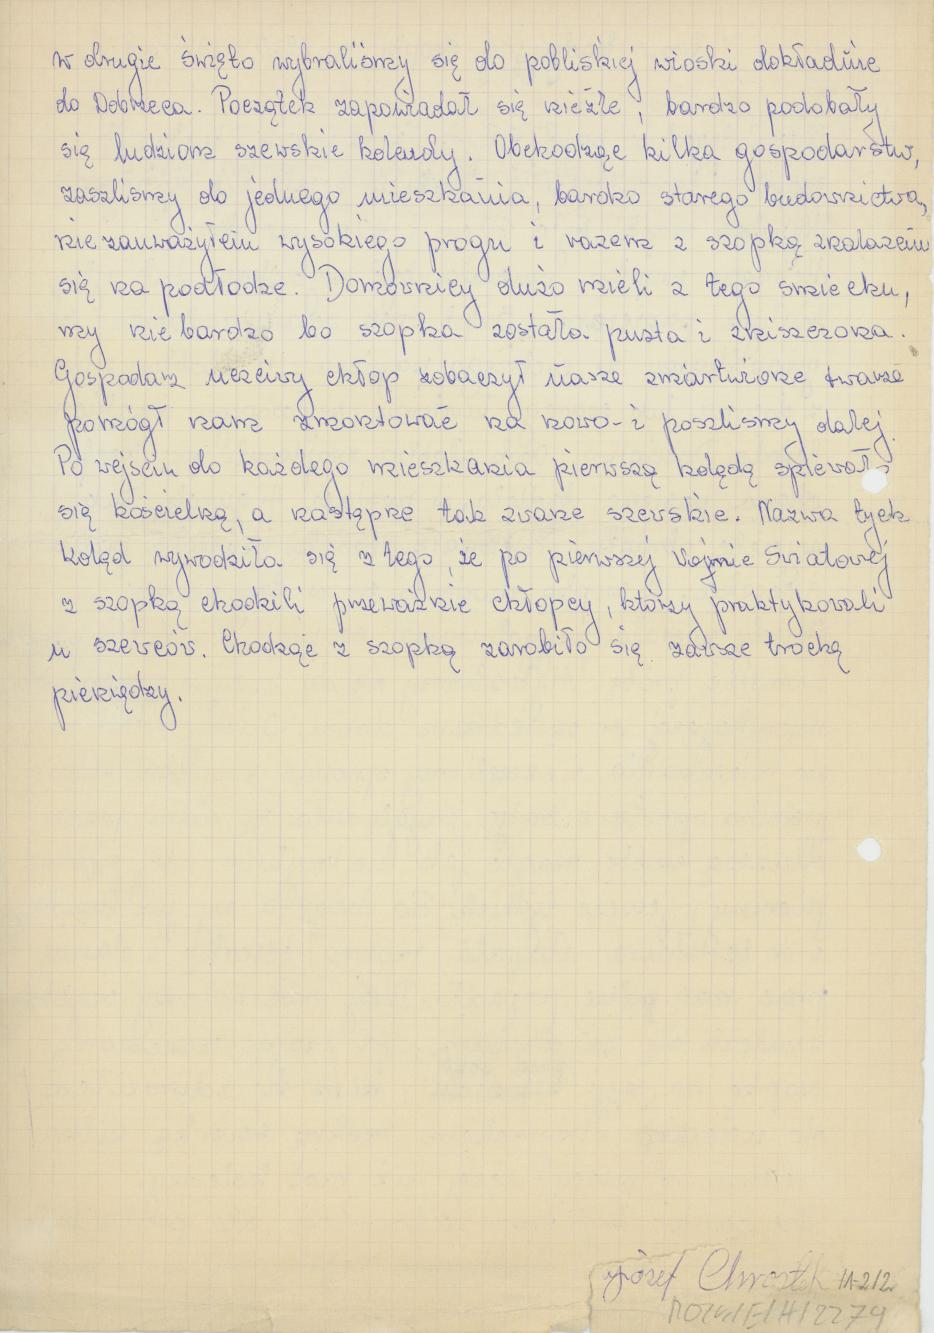 w drugie święto wybraliśmy się do pobliskiej wioski dokładnie
do Dobrzeca. Początek zapowiadał się nieźle, bardzo podobały
się ludziom szewskie kolendy. Obchodząc kilka gospodarstw,
zaszlismy do jednego mieszkania, bardzo starego budownictwa,
nie zauważyłem wysokiego progu i razem z szopką znalazłem
się na podłodze. Domownicy dużo mieli z tego smiechu,
my nie bardzo bo szopka została pusta i zniszczona.
Gospodarz uczciwy chłop zobaczył nasze zmartwione twarze
pomógł nam zmontować na nowo - i poszlismy dalej.
Po wejsciu do każdego mieszkania pierwszą kolędą spiewało
się kościelną, a następne tak zwane szewskie. Nazwa tych
kolęd wywodziła się z tego, że po pierwszej Wojnie Swiatowej
z szopką chodzili przeważnie chłopcy, którzy praktykowali
u szewców. Chodząc z szopką zarobiło się zawsze trochę
pieniędzy.
Józef Chrostek 11-2/2